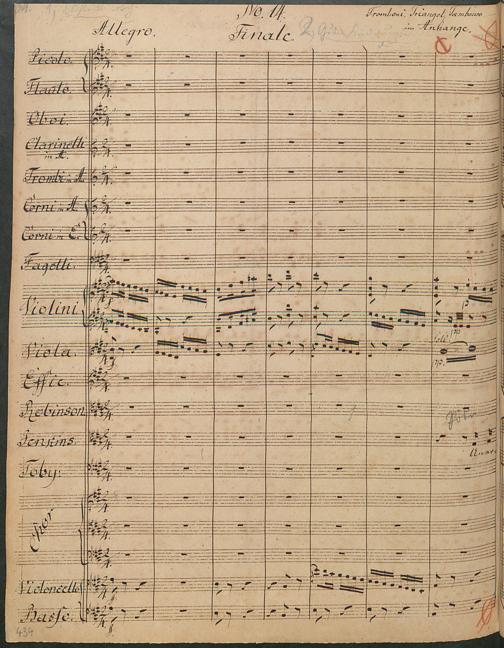 No. 14.
Tromboni, Triangel, Tamburo
im Anhange.
Allegro.
Finale
Picolo.
Flauto.
Oboi.
Clarinetti
in A.
Trombi in A
Corni in A.
Corni in E.
Fagotti.
Violini
Viola.
Effie.
Robinson
Jenkins.
Toby.
Chor
Violoncello
Basso.
434